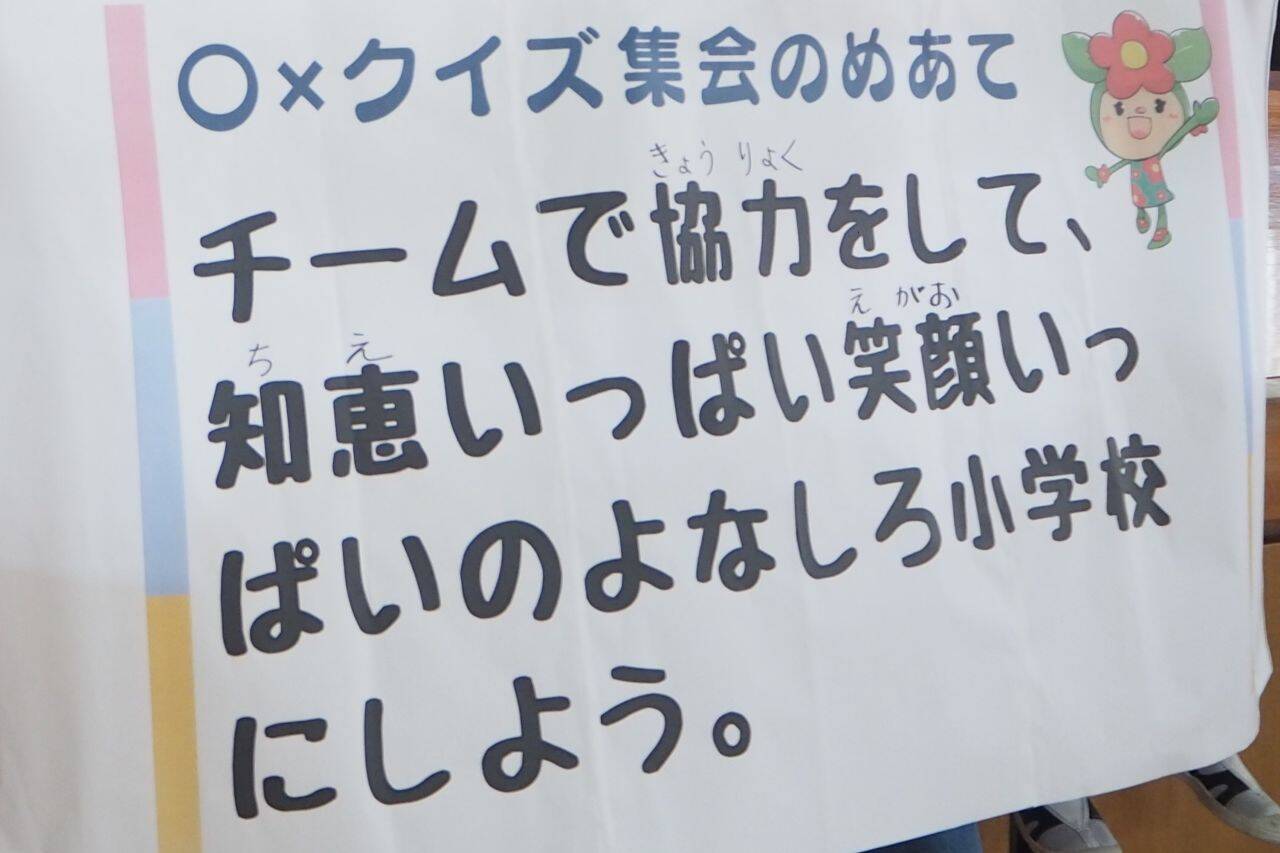 ○×クイズ集会のめあて
きょう りょく
チームで協力をして、
ち え え がお
知恵いっぱい笑顔いっ
ぱいのよなしろ小学校
にしよう。